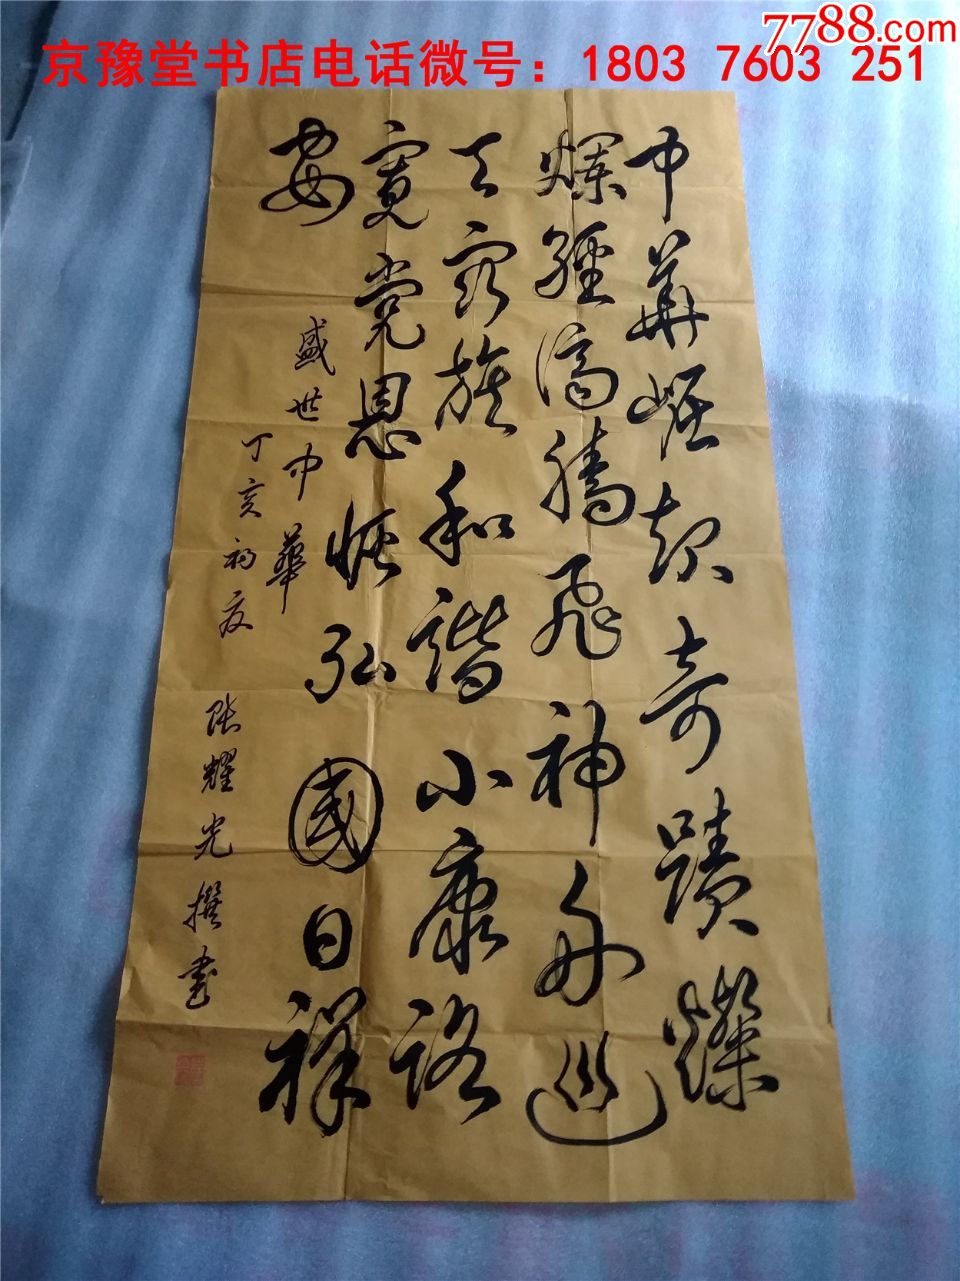 7788.com
京豫堂书店电话微号：1803 7603 251
中華崛起奇蹟燦
爛經濟騰飛神舟巡
天族和谐小康路
寬党恩恢弘國日祥
安
盛世中華
丁亥初夏 张耀光撰書